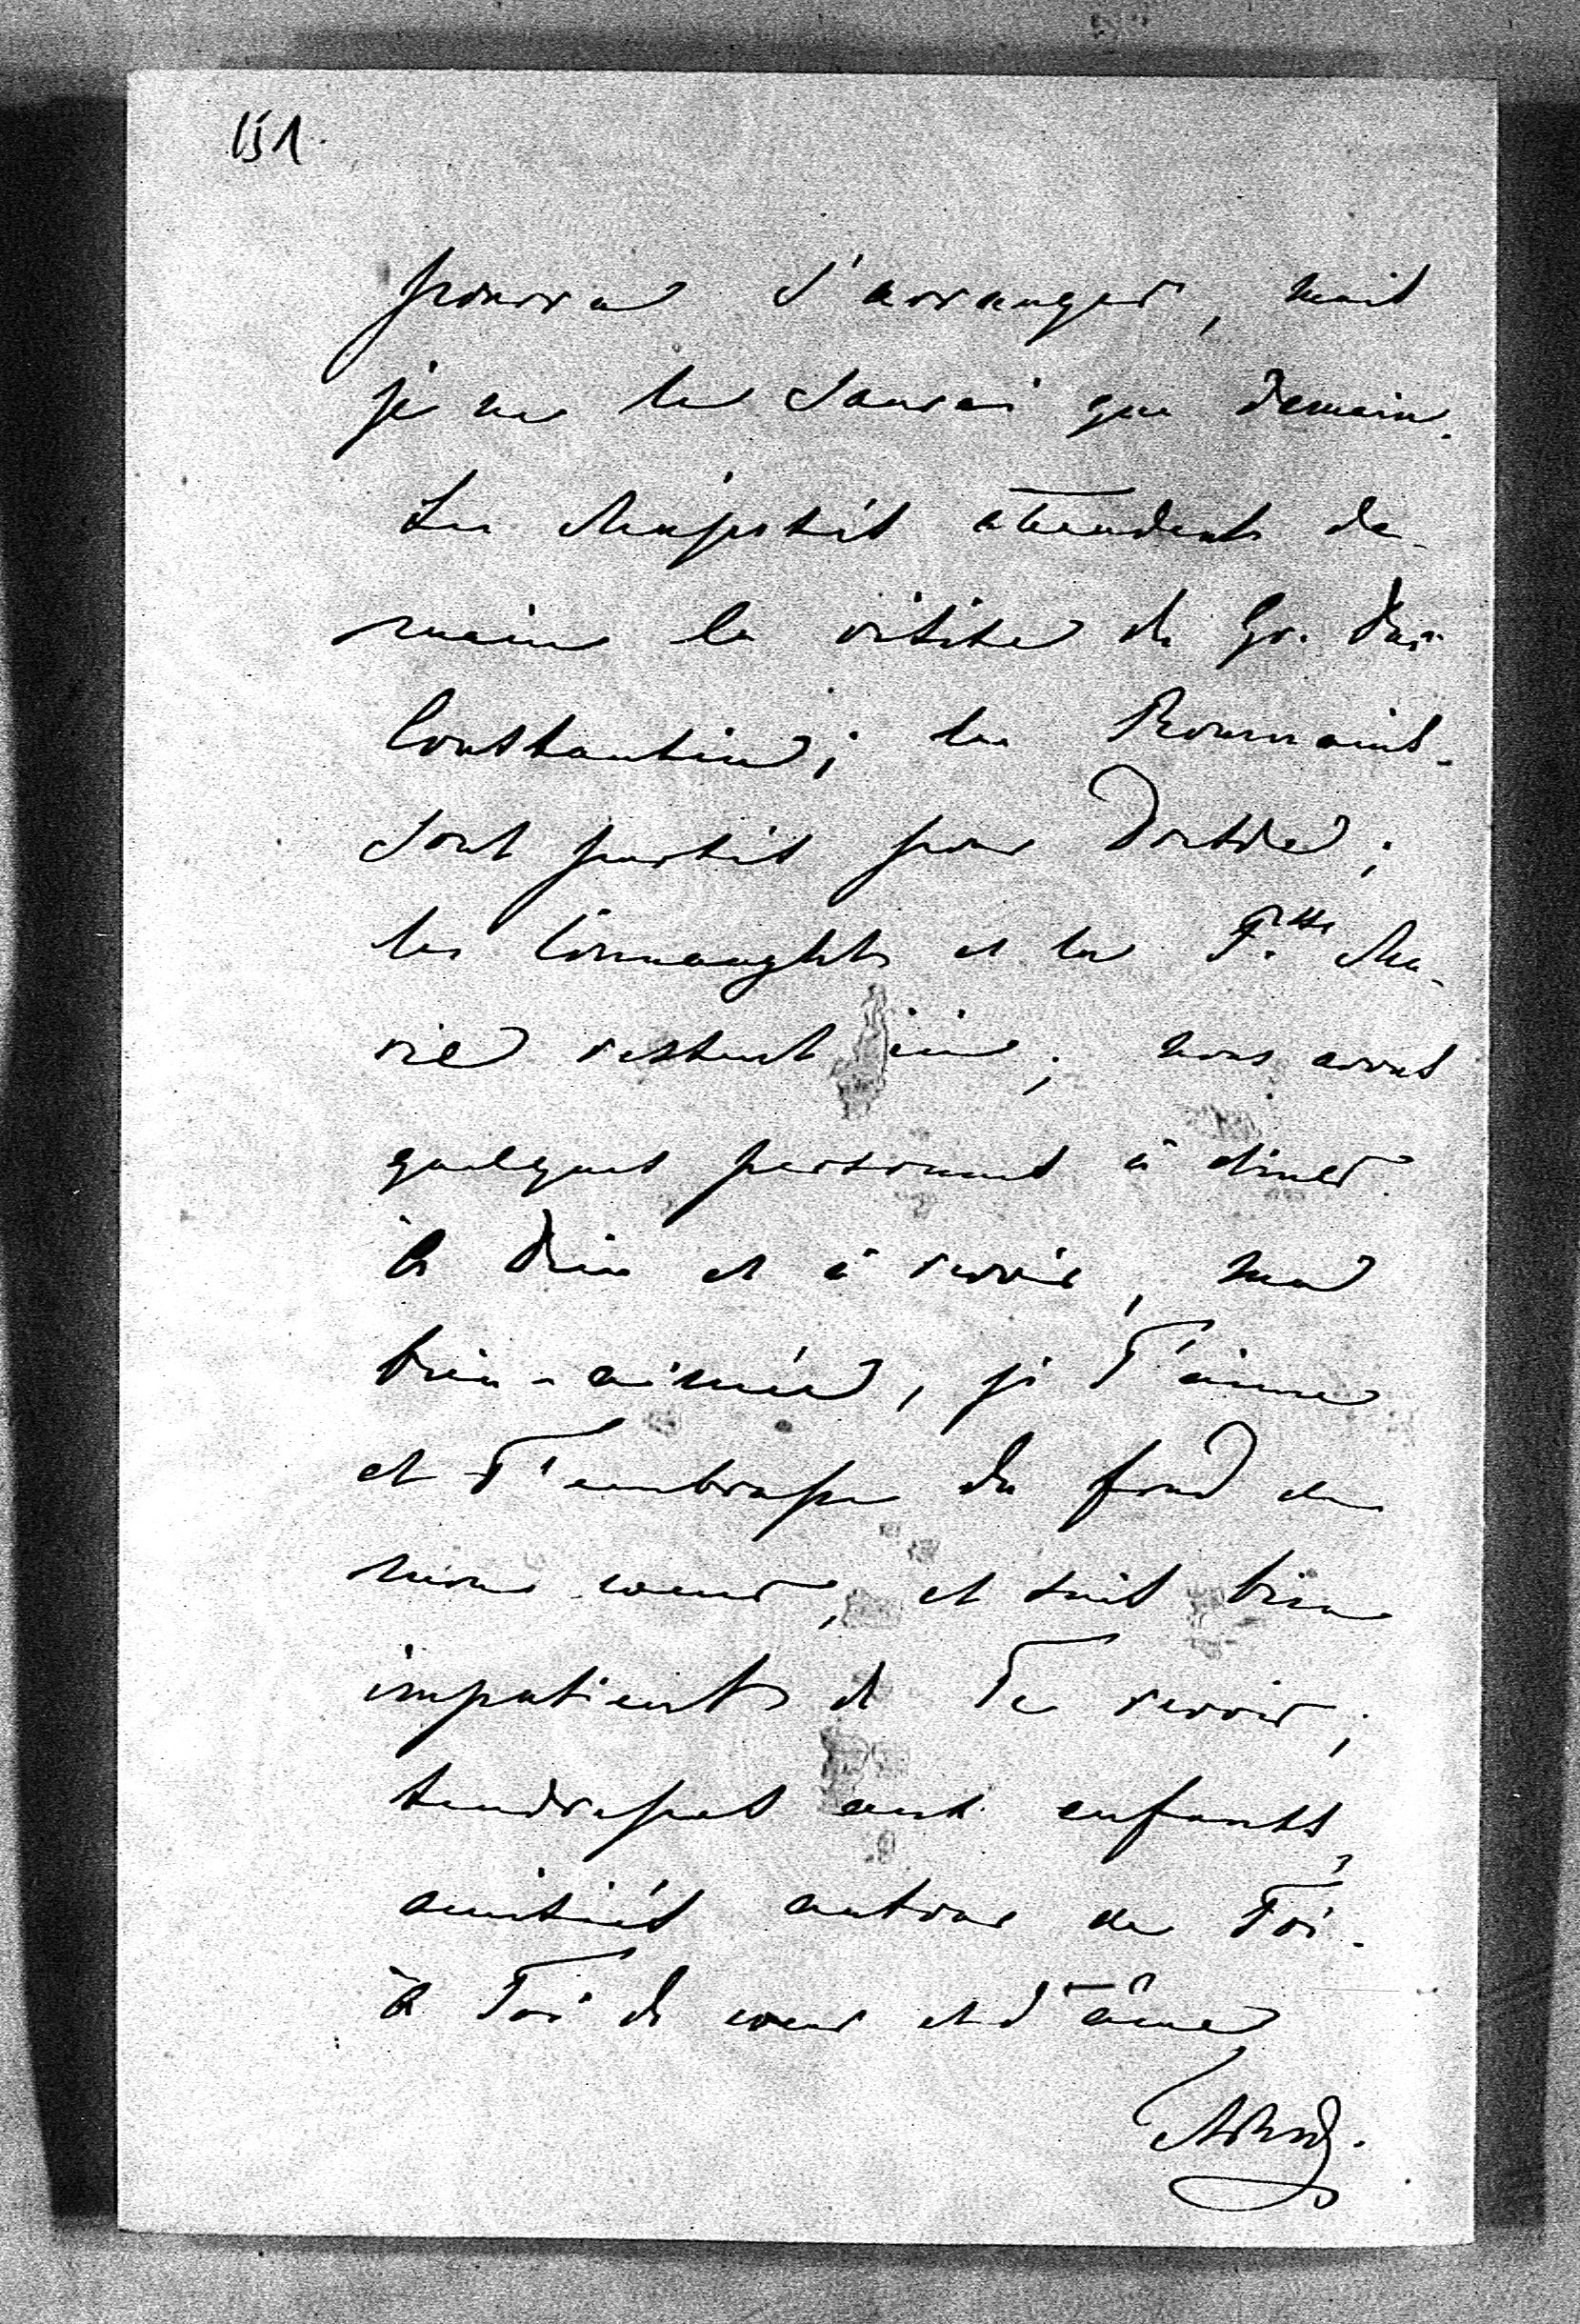 151.
pourra s'arranger, mais
je ne le saurai que demain.
Les Majestés attendent de-
main la visite du Gr. Duc
Constantin; les Roumains
sont partis pour
les Connaughts et la P.sse Ma-
rie restent ici; nous avons
quelques personnes à diner.
à Dieu et à revoir, ma
bien-aimée, je T'aime
et T'embrasse du fond de
mon coeur, et suis bien
impatient de Te revoir;
tendresses aux enfants,
amitiés autour de Toi.
à Toi de coeur et d'âme